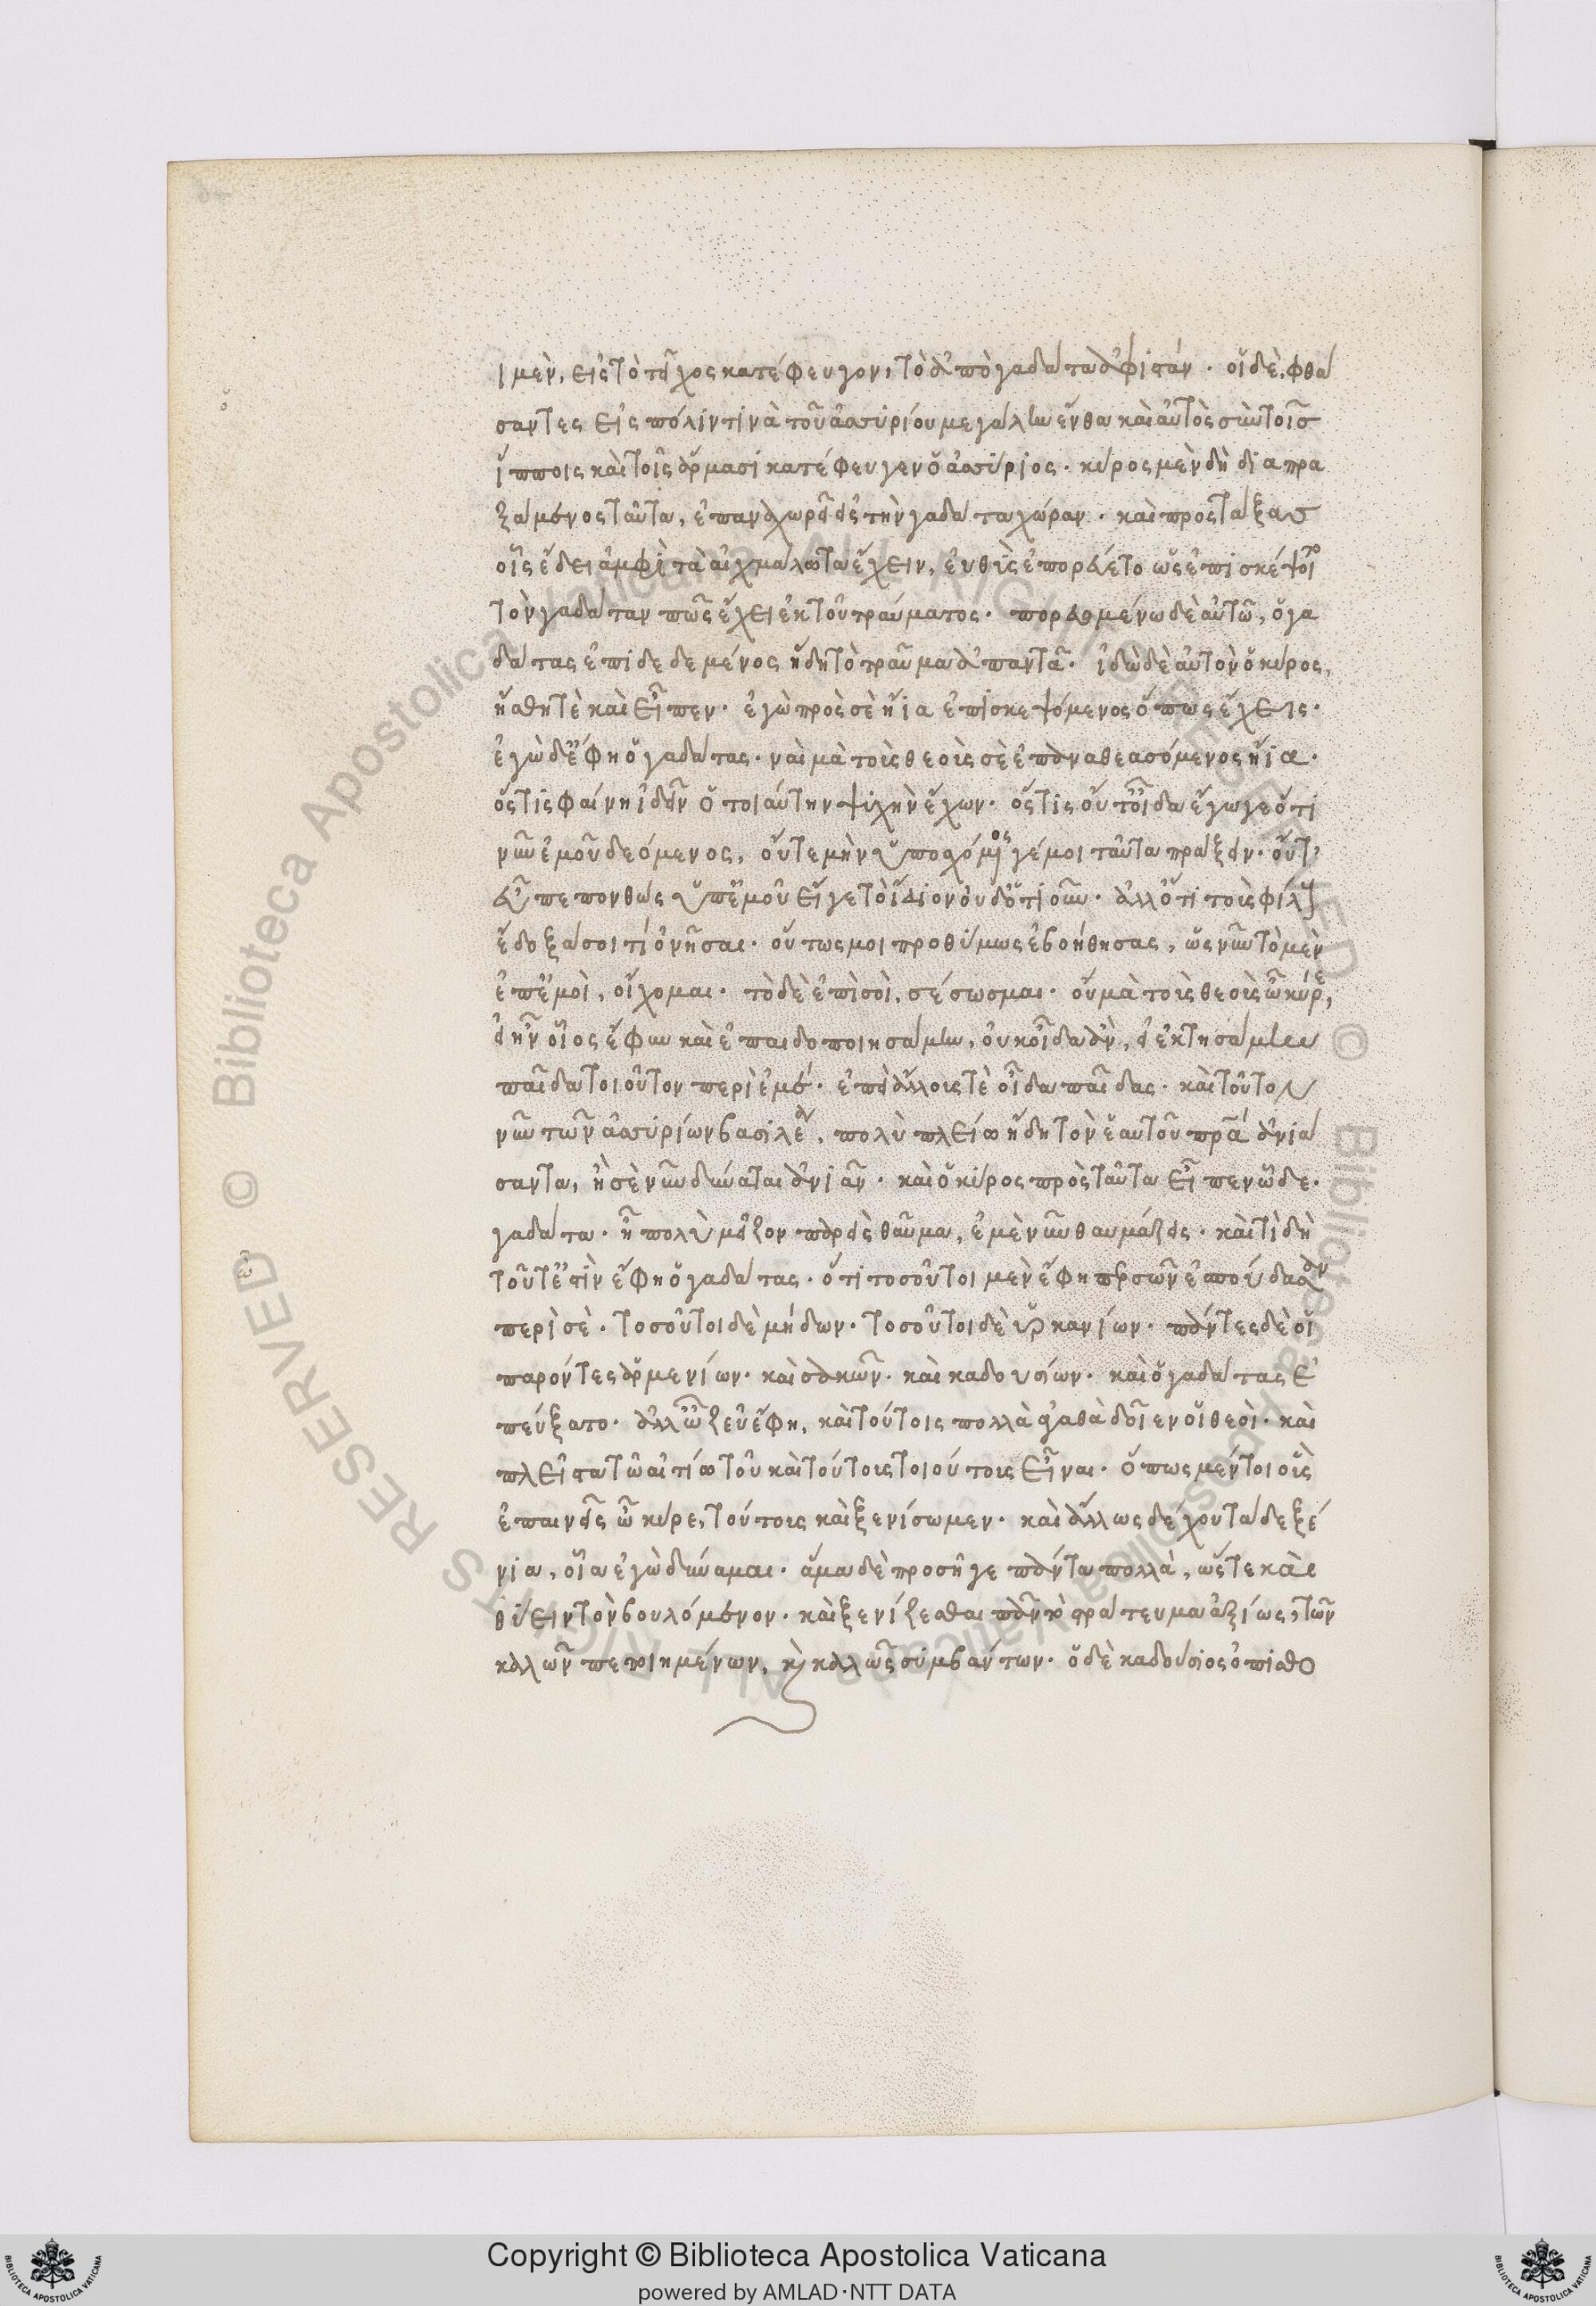 ι μὲν, εἰς τὸ τεῖχος κατέφευγον, τὸ ἀπὸ γαδάτα ἀφιστάν. οἱ δὲ, φθά
σαντες εἰς πόλιν τινὰ τοῦ ἀσυρίου μεγάλην ἔνθα καὶ αὐτὸς σὺν τοῖς
ἵπποις καὶ τοῖς ἅρμασι κατέφευγεν ὁ ἀσύριος. κύρος μὲν δὴ διαπρα
ξάμενος ταῦτα, ἐπαναχωρεῖ εἰς τὴν γαδάτα χώραν. καὶ προστάξας
οἷς ἔδει ἀμφὶ τὰ αἰχμάλωτα ἔχειν, εὐθὺς ἐπορεύετο ὡς ἐπισκέψοιτο
τὸν γαδάταν πῶς ἔχει ἐκ τοῦ τραύματος. πορευομένω δὲ αὐτῶ, ὁ γα
δάτας ἐπιδεδεμένος ἤδη τὸ τραῦμα ἀπαντᾶ. ἰδὼν δὲ αὐτὸν ὁ κύρος,
ἥσθη τὲ καὶ εἶπεν. ἐγὼ πρὸς σὲ ἤια ἐπισκεψόμενος ὅπως ἔχεις.
ἐγὼ δ' ἔφη ὁ γαδάτας. ναὶ μὰ τοὺς θεοὺς σὲ ἐπαναθεασόμενος ἤια.
ὅστις φαίνη ἰδεῖν ὁ τοιαύτην ψυχὴν ἔχων. ὅστις οὔτ' οἶδα ἔγωγε ὅτι
νῦν ἐμοῦ δεόμενος, οὔτε μὴν ὑποσχόμενός γέ μοι ταῦτα πράξειν. οὔτ'
εὖ πεπονθὼς ὑπ' ἐμοῦ εἴγε τὸ ἴδιον οὐδ' ὁτιοῦν. ἀλλ' ὅτι τοὺς φίλους
ἔδοξά σοι τί ὀνῆσαι. οὕτως μοι προθύμως ἐβοήθησας, ὡς νῦν τὸ μὲν
ἐπ' ἐμοὶ, οἴχομαι. τὸ δὲ ἐπὶ σοὶ, σέσωσμαι. οὐ μὰ τοὺς θεοὺς ὦ κύρε,
εἰ ἦν οἷος ἔφυν καὶ ἐπαιδοποιησάμην, οὐκ οἶδα ἂν, εἰ ἐκτησάμην
παῖδα τοιοῦτον περὶ ἐμέ. ἐπεὶ ἄλλους τὲ οἶδα παῖδας. καὶ τοῦτον
νῦν τῶν ἀσυρίων βασιλέα, πολὺ πλείω ἤδη τὸν ἑαυτοῦ πρα ἀνιά
σαντα, ἢ σὲ νῦν δύναται ἀνιᾶν. καὶ ὁ κύρος πρὸς ταῦτα εἶπεν ὧδε.
γαδάτα. ἦ πολὺ μεῖζον παρεὶς θαῦμα, ἐμὲ νῦν θαυμάζεις. καὶ τί δὴ
τοῦτ' ἐστὶν ἔφη ὁ γαδάτας. ὅτι τοσοῦτοι μὲν ἔφη περσῶν ἐσπούδασαν
περὶ σὲ. τοσοῦτοι δὲ μήδων. τοσοῦτοι δὲ ὑρκανίων. πάντες δὲ οἱ
παρόντες ἀρμενίων. καὶ σακῶν. καὶ καδουσίων. καὶ ὁ γαδάτας ἐ
πεύξατο. ἀλλ' ὦ ζεῦ ἔφη, καὶ τούτοις πολλὰ ἀγαθὰ δοῖεν οἱ θεοὶ. καὶ
πλεῖστα τῶ αἰτίω τοῦ καὶ τούτους τοιούτους εἶναι. ὅπως μέντοι οὓς
ἐπαινεῖς ὦ κύρε, τούτους καὶ ξενίσωμεν. καὶ ἄλλως δέχου τάδε ξέ
νια, οἷα ἐγὼ δύναμαι. ἅμα δὲ προσῆγε πάντα πολλὰ, ὥστε καὶ
θύειν τὸν βουλόμενον. καὶ ξενίζεσθαι πᾶν τὸ στράτευμα ἀξίως, τῶν
καλῶν πεποιημένων, κὶ καλῶς συμβάντων. ὁ δὲ καδούσιος ὀπισθο